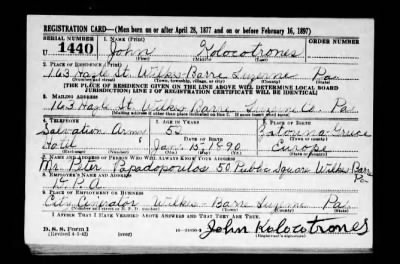 REGISTRATION CARD—(Men born on or after April 28, 1877 and on or before February 16, 1897)
SERIAL NUMBER 1. NAME (Print) ORDER NUMBER
U 1440 John Kolocotrones
(First) (Middle) (Last)
2. PLACE OF RESIDENCE (Print)
163 Hazle St. Wilkes-Barre Luzerne Pa.
(Number and street) (Town, township, village, or city) (County) (State)
[THE PLACE OF RESIDENCE GIVEN ON THE LINE ABOVE WILL DETERMINE LOCAL BOARD
JURISDICTION; LINE 2 OF REGISTRATION CERTIFICATE WILL BE IDENTICAL]
3. MAILING ADDRESS
163 Hazle St. Wilkes-Barre Luzerne Co. Pa.
[Mailing address if other than place indicated on line 2. If same insert word same]
4. TELEPHONE 5. AGE IN YEARS 6. PLACE OF BIRTH
Salvation Army 52 Greece
DATE OF BIRTH
Hotel Jan. 15-1890 Europe
7. NAME AND ADDRESS OF PERSON WHO WILL ALWAYS KNOW YOUR ADDRESS
Mr. Peter Papadopoulos 50 Public Square Wilkes Barre
Pa
8. EMPLOYER'S NAME AND ADDRESS
W. P. A.
9. PLACE OF EMPLOYMENT OR BUSINESS
City Wilkes-Barre Luzerne Pa.
(Number and street or R. F. D. number) (Town) (County) (State)
I AFFIRM THAT I HAVE VERIFIED ABOVE ANSWERS AND THAT THEY ARE TRUE.
D. S. S. Form 1
(Revised 4-1-42) (over)
John Kolocotrones
(Registrant's signature)